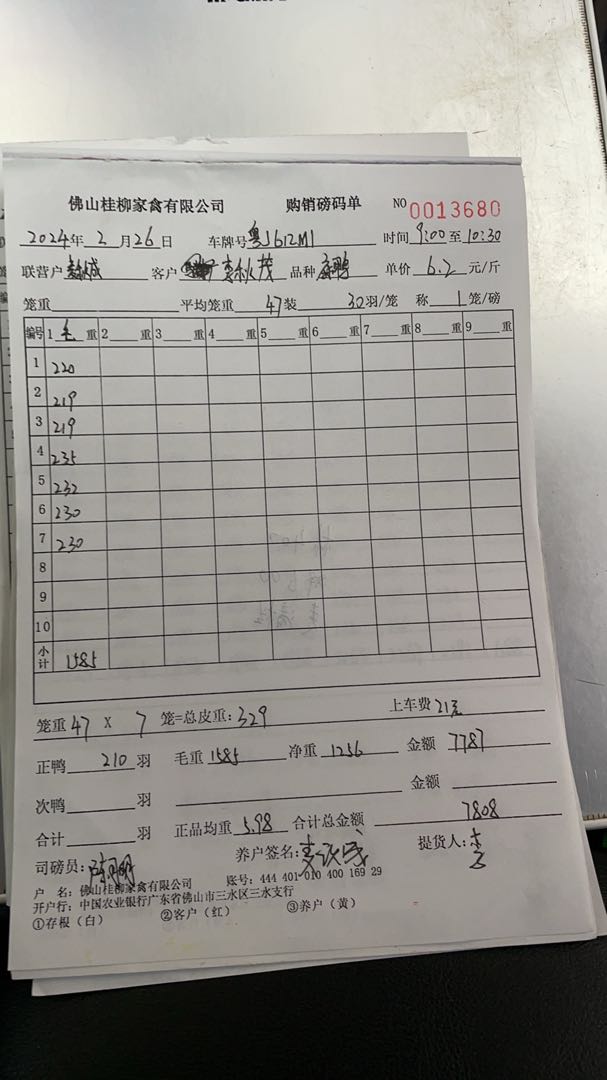 佛山桂柳家禽有限公司 购销磅码单 NO 0013680
2024年 2 月 26 日 车牌号 粤J612M1 时间 9:00 至 10:30
联营户 客户 李秋茂 品种 单价 6.2 元/斤
笼重 平均笼重 47 装 30 羽/笼 称 1 笼/磅
编号 1 毛 重 2 重 3 重 4 重 5 重 6 重 7 重 8 重 9 重
1 220
2 219
3 219
4 235
5 232
6 230
7 230
8
9
10
小计 1585
笼重 47 X 7 笼=总皮重: 329 上车费 21元
正鸭 210 羽 毛重 1585 净重 1256 金额 7787
次鸭 羽 金额
合计 羽 正品均重 5.98 合计总金额 7808
司磅员: 养户签名: 提货人: 李
户 名: 佛山桂柳家禽有限公司 账号: 444 401 010 400 169 29
开户行: 中国农业银行广东省佛山市三水区三水支行
①存根（白） ②客户（红） ③养户（黄）